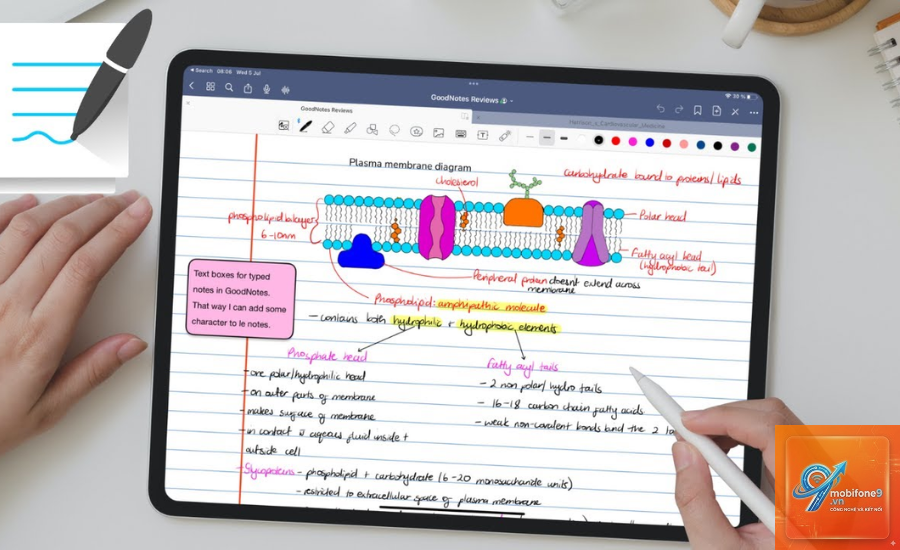 Search 08:08 Wed 5 Jul
33 %
GoodNotes Reviews
GoodNotes Reviews
Plasma membrane diagram
cholesterol
carbohydrate bound to proteins/lipids
phospholipid bilayer
6-10nm
Polar head
Fatty acyl head
(hydrophobic tail)
Peripheral protein doesnt extend across
membrane
Text boxes for typed
notes in GoodNotes.
That way I can add some
character to le notes.
Phospholipid: amphipathic molecule
- contains both hydrophilic + hydrophobic elements
Phosphate head
- one polar/hydrophilic head
- on outer parts of membrane
- makes surface of membrane
- in contact w aqueous fluid inside +
outside cell
Fatty acyl tails
- 2 non polar/ hydro tails
- 16-18 carbon chain fatty acids
- weak non-covalent bonds bind the 2
Glycoproteins - phospholipid + carbohydrate (6-20 monosaccharide units)
- restricted to extracellular space of plasma membrane
mobifone9
.vn
CÔNG NGHỆ VÀ KẾT NỐI